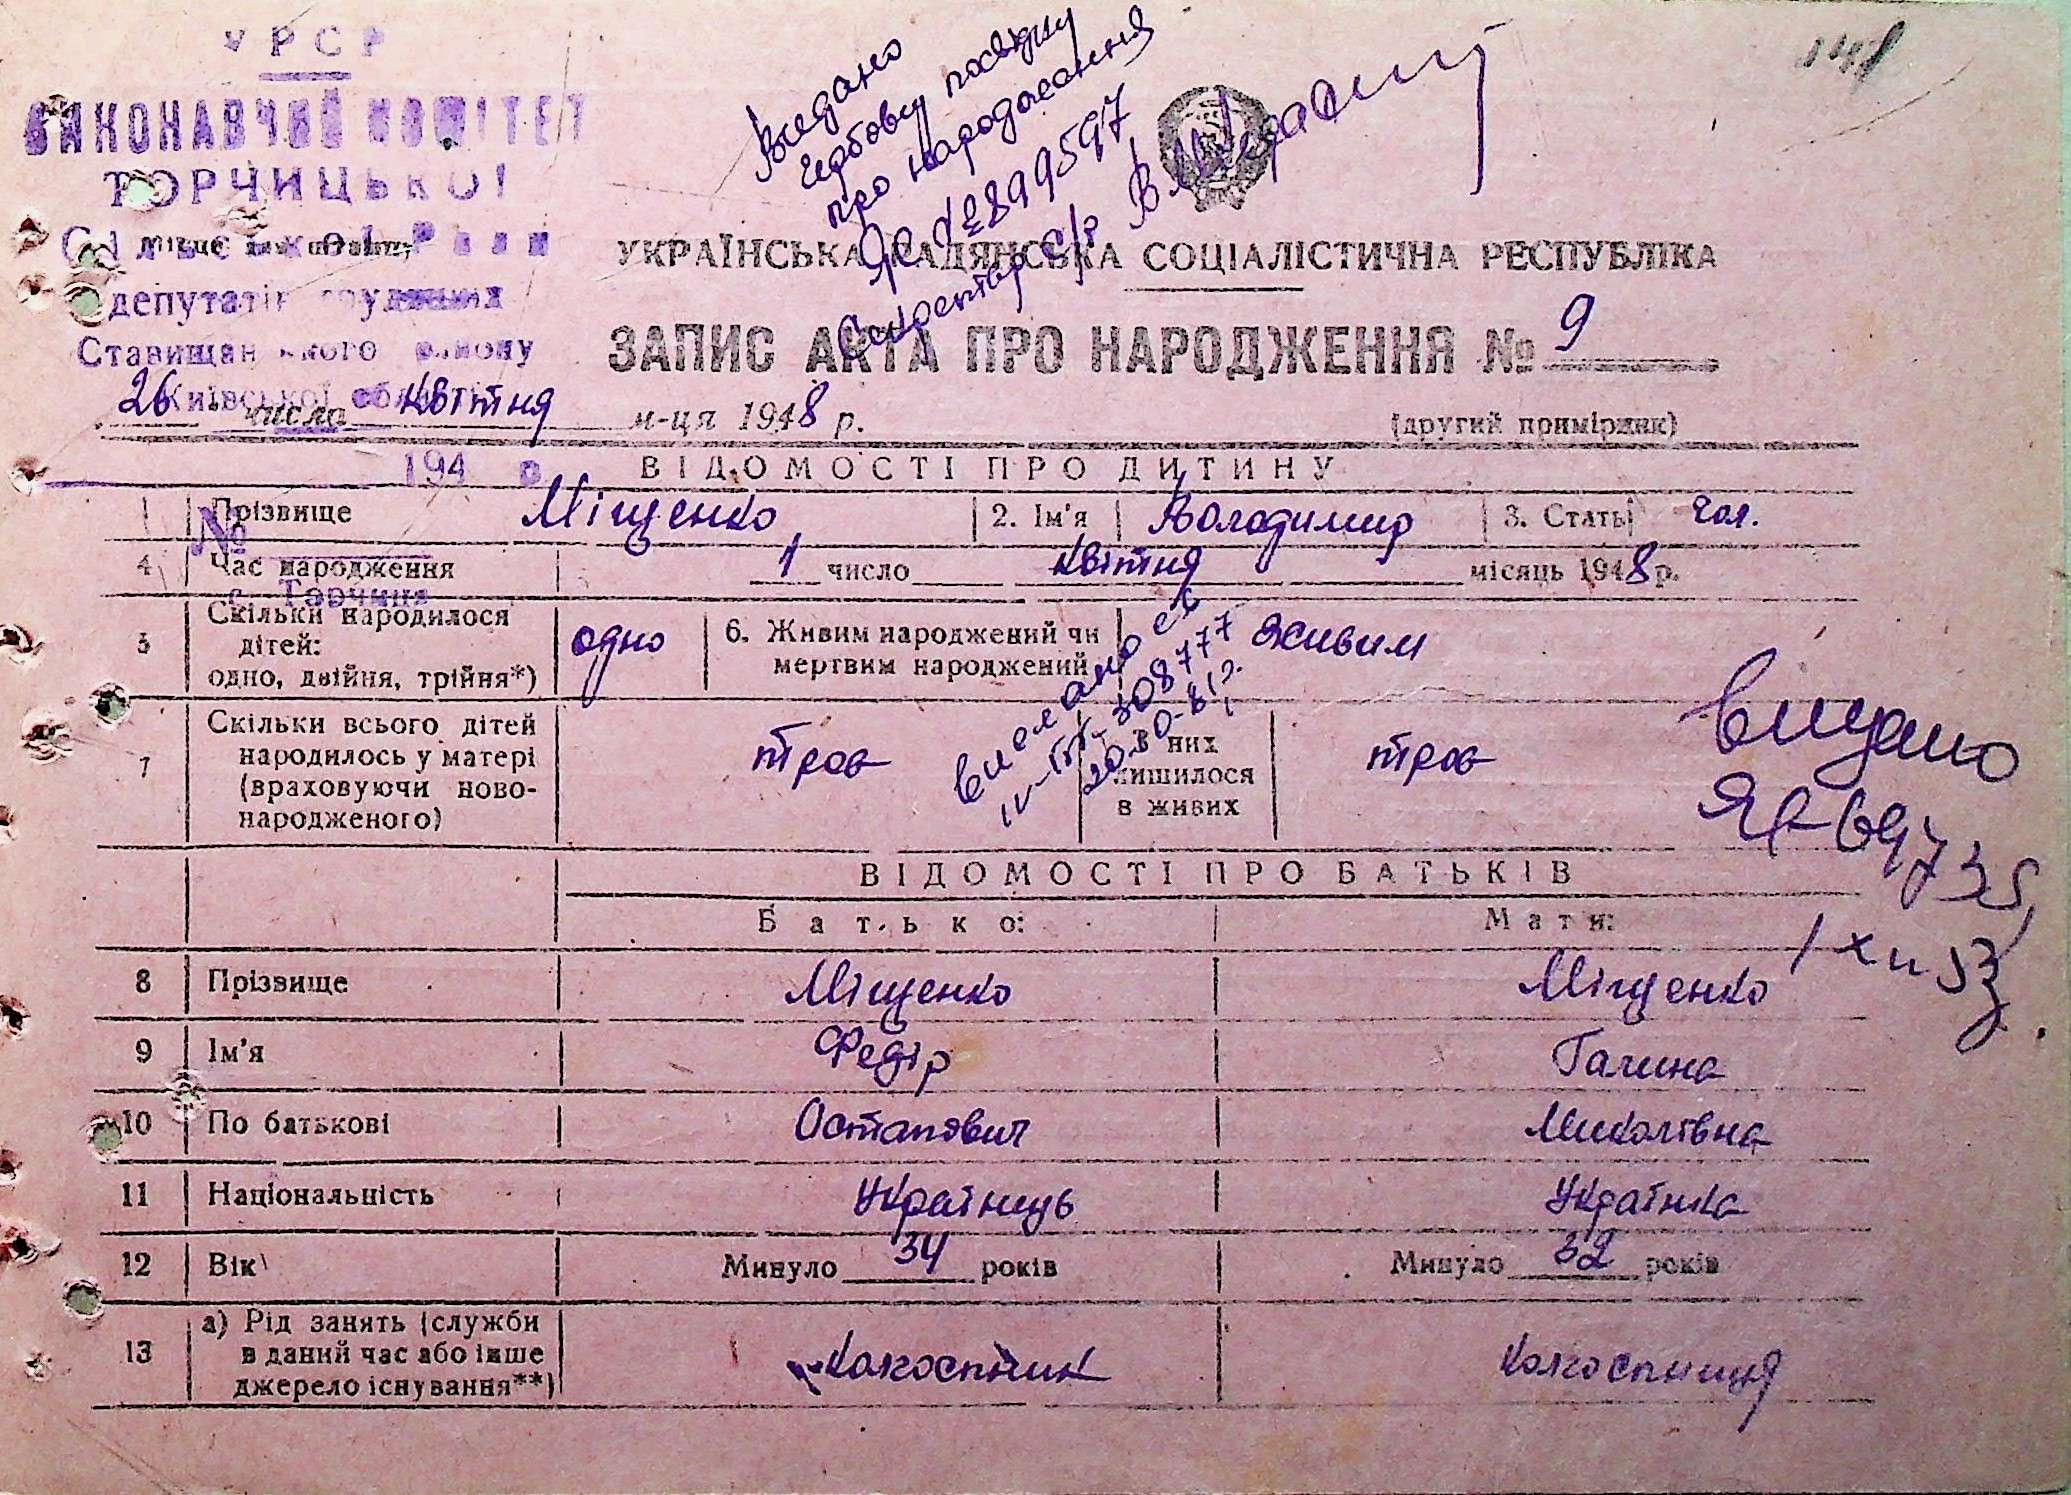 УРСР
ВИКОНАВЧИЙ КОМІТЕТ
ТОРЧИЦЬКОЇ
Сільської Ради
депутатів трудящих
Ставищанського району
Київської області
194 р.
№
с. Торчиця
Місце для штампу
Видано
гербову посвідку
про народження
№ 899597
148
УКРАЇНСЬКА РАДЯНСЬКА СОЦІАЛІСТИЧНА РЕСПУБЛІКА
ЗАПИС АКТА ПРО НАРОДЖЕННЯ № 9
26 числа квітня м-ця 1948 р. (другий примірник)
ВІДОМОСТІ ПРО ДИТИНУ
1 Прізвище Міщенко 2. Ім'я Володимир 3. Стать чол.
4 Час народження 1 число квітня місяць 1948 р.
5 Скільки народилося дітей: одно, двійня, трійня*) одно 6. Живим народжений чи мертвим народжений живим
7 Скільки всього дітей народилось у матері (враховуючи новонародженого) троє З них лишилося в живих троє
308777
видано
69735
ВІДОМОСТІ ПРО БАТЬКІВ
Батько: Мати:
8 Прізвище Міщенко Міщенко
9 Ім'я Федір Галина
10 По батькові Остапович Миколівна
11 Національність Українець Українка
12 Вік Минуло 34 років Минуло 32 років
13 а) Рід занять (служби в даний час або інше джерело існування**) колгоспник колгоспниця